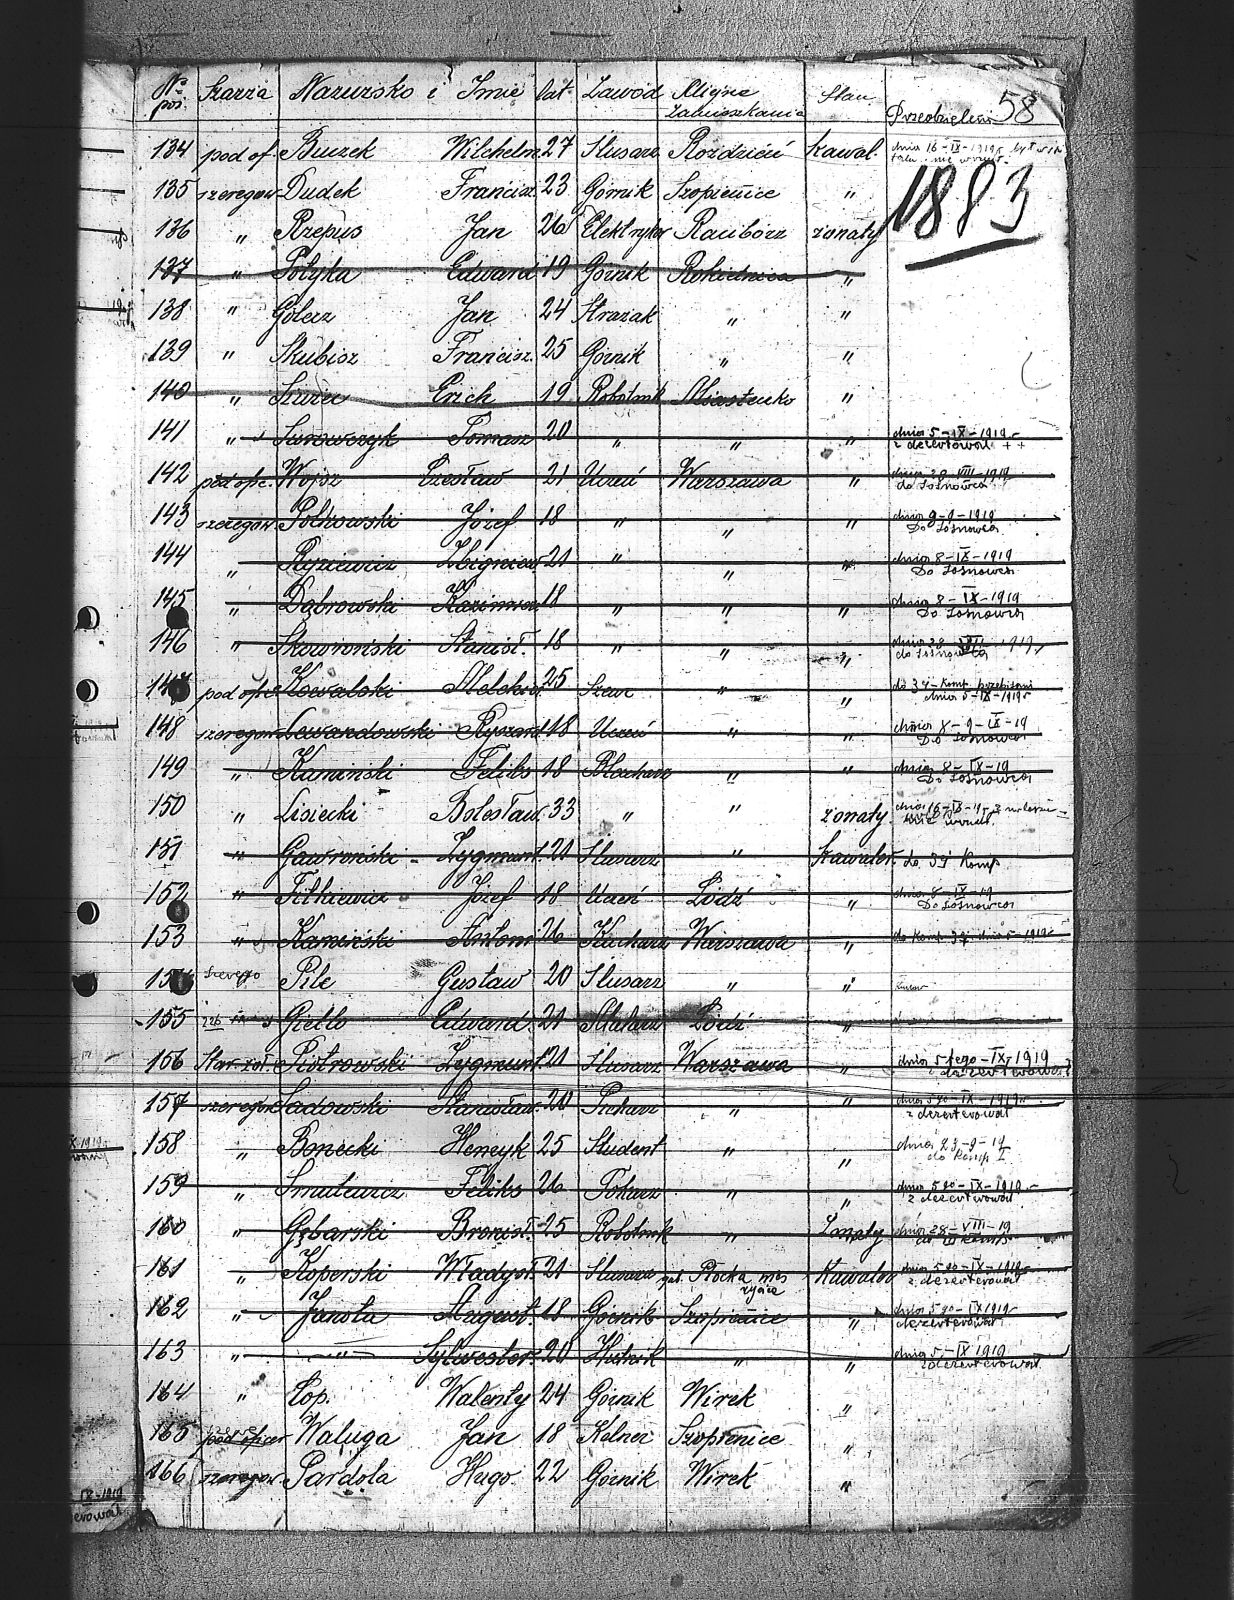 № poz. Szarża Nazwisko i Imię lat Zawód Miejsce zamieszkania Stan Przedzieleni 58
134 pod of. Buczek Wilchelm 27 Slusarz Roździeń kawal. dnia 16-IX-1919r
135 szeregow Dudek Francisz. 23 Górnik Szopienice "
1883
136 " Rzepus Jan 26 Elektryker Racibórz żonaty
137 " Połyka Edward 19 Górnik Rokietnica "
138 " Golecz Jan 24 Strażak " "
139 " Skubisz Francisz. 25 Górnik " "
140 " Erich 19 Robotnik Miasteczko "
141 " Surowczyk Tomasz 20 " " " dnia 5-IX-1919 z dezertował ++
142 pod ofic. Wojsz Czesław 21 Uczeń Warszawa " dnia 28 VIII-1919 do Sosnowca
143 szeregow Piotrowski Józef 18 " " " dnia 9-9-1919 Do Sosnowca
144 " Ryziewicz Zbigniew 21 " " " dnia 8-IX-1919 Do Sosnowca
145 " Dąbrowski Kazimierz 18 " " " dnia 8-IX-1919 Do Sosnowca
146 " Skowroński Stanisł. 18 " " " dnia 28 VIII 1919 do Sosnowca
147 pod ofic Kowalski 25 Szewc " " do 34-Komp. przepisani dnia 5-IX-1919
148 szeregow Lewandowski Ryszard 18 Uczeń " " dnia 8-9-IX-19 Do Sosnowca
149 " Kamiński Feliks 18 Blacharz " " dnia 8-IX-19 Do Sosnowca
150 " Lisiecki Bolesław 33 " " żonaty dnia 16-IX-19
151 " Gawroński - Zygmunt. 21 Slusarz " Kawaler. do Komp
152 " Fitkiewicz Józef 18 Uczeń Łódź " dnia 8-IX-19 Do Sosnowca
153 " Kamiński Antoni 26 Kucharz Warszawa " do Komp 1919
154 Szerego Pile Gustaw 20 Slusarz " "
155 Giełło Edward. 21 Malarz Łódź "
156 Star. żoł. Piotrowski Zygmunt. 21 Slusarz Warszawa " dnia 5 tego-IX, 1919 dezerterował
157 szeregow Sadowski Stanisław. 20 Piekarz " " dnia 5go-IX-1919 z dezerterował
158 " Bonecki Henryk 25 Student " " dnia 23-9-19 do Komp I
159 " Smulewicz Feliks 26 Tokarz " " dnia 5go-IX-1919 z dezerterował
160 " Gębarski Bronisł. 25 Robotnik " Żonaty dnia 28-VIII-19
161 " Koperski Władysł. 21 Slusarz Płocka Kawaler dnia 5go-IX-1919 z dezerterował
162 " Janota August. 18 Górnik Szopienice " dnia 5go-IX 1919 dezerterował
163 " " Sylwester 20 Hutnik " " dnia 5,-IX 1919 zdezerterował
164 " Cop. Walenty 24 Górnik Wirek "
165 pod oficer Waluga Jan 18 Kelner Szopienice "
166 szeregow. Pardola Hugo 22 Górnik Wirek "
IX-1919
erował